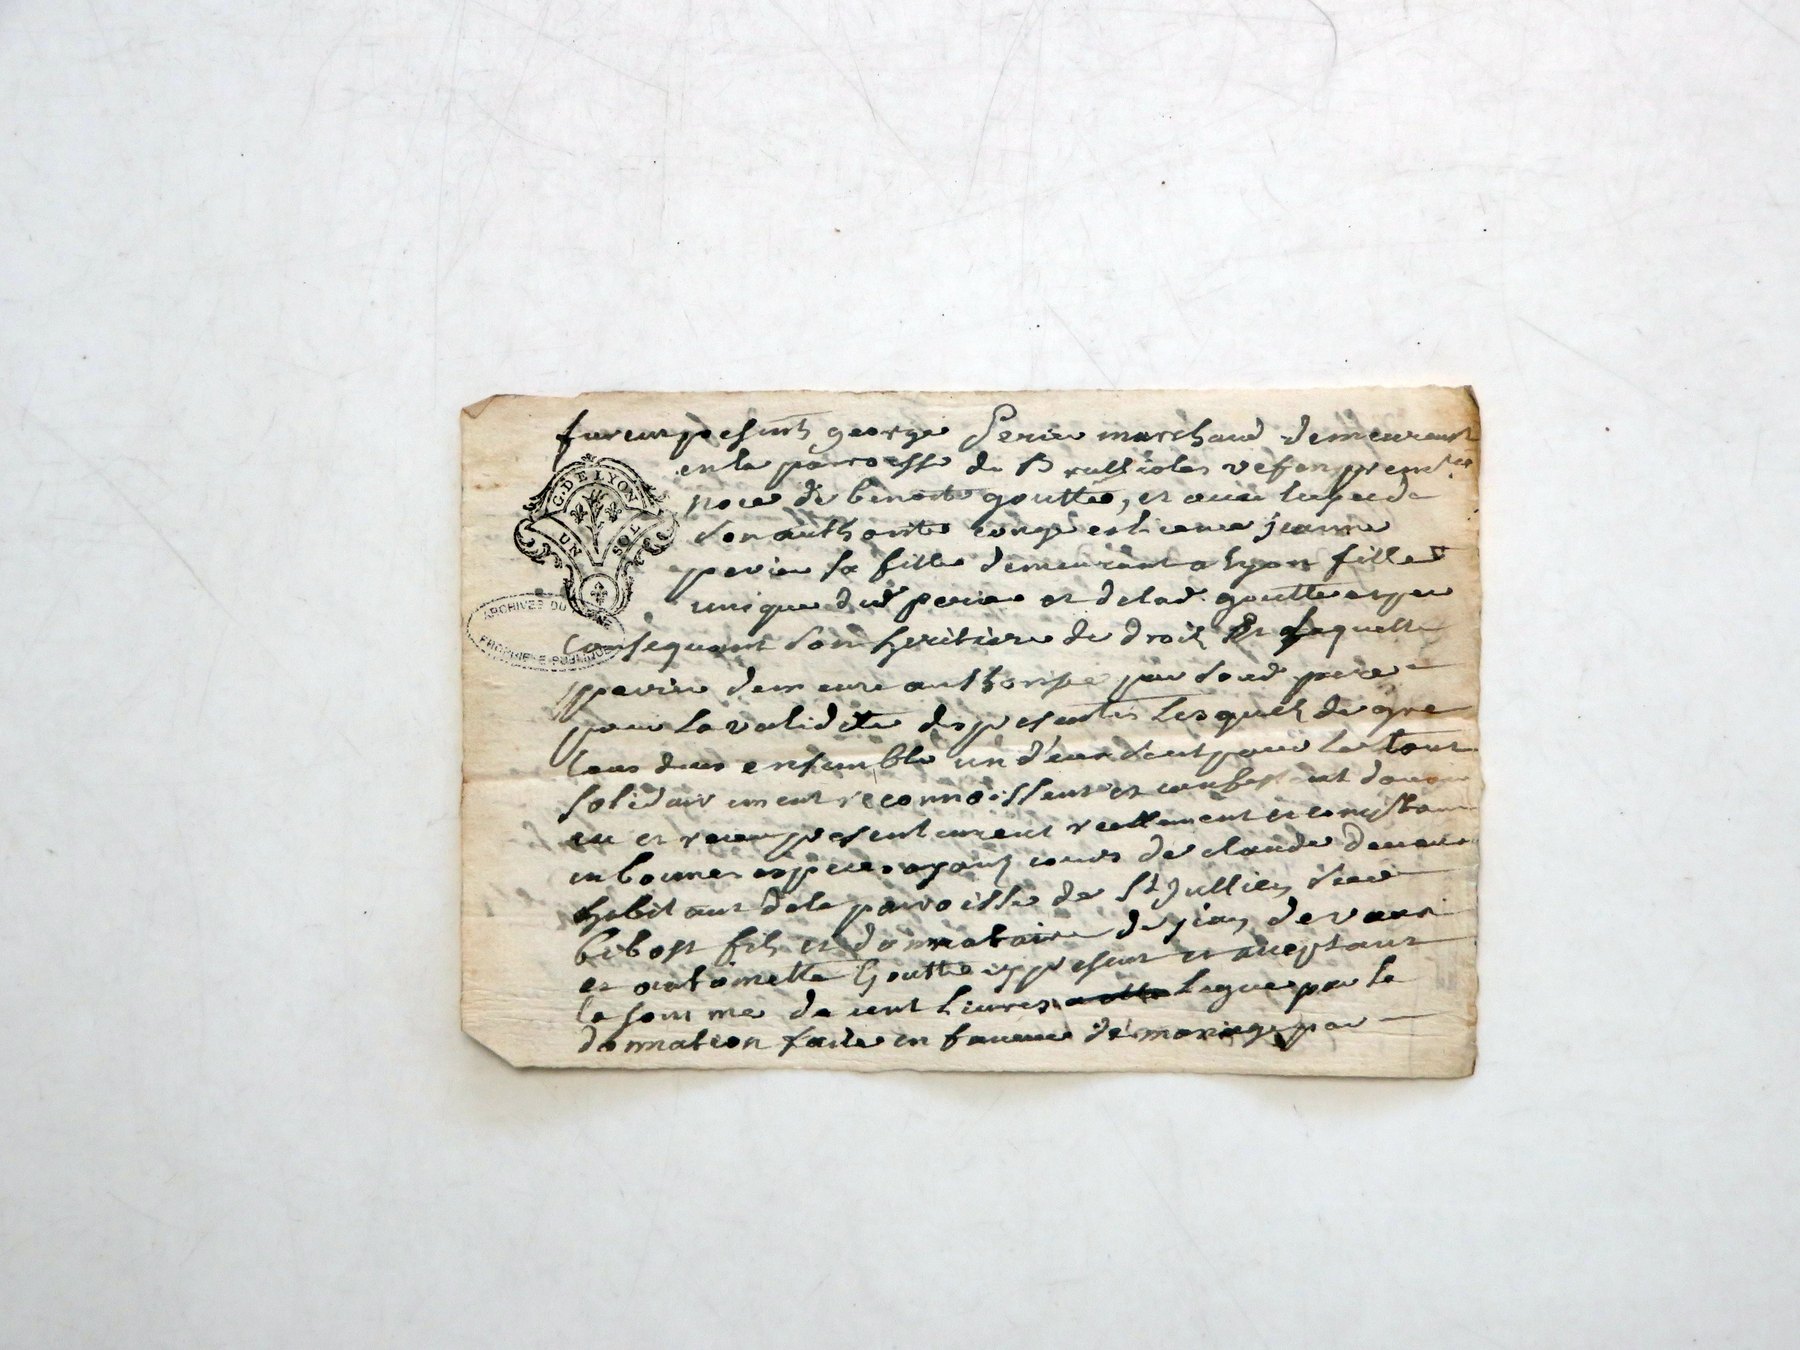 furent presents george Perier marchand demeurant
en la parroesse de Brullioles vefen premiere
G. DE LYON
noce de benoite goutte, et avec luy et de
UN SOL
son authorite conge et licence jeanne
perier sa fille demeurant a lyon fille
unique dud perier et delad goutte et par
ARCHIVES DU RHONE
PROPRIETE PUBLIQUE
consequant son heritiere de droit et laquelle
perier demeure authorisee par sond pere
pour la validite des presentes lesquels de gre
tous deux ensemble un d'eux seul pour le tout
solidairement reconnoissent et confessent
eu et receu presentement reellement et comptant
en bonnes especes ayant cours de claude
habitant dela parroisse de St Jullien
bibost fils et donnataire de jean
et antoinette Goutte present et acceptant
la somme de cent livres legue par la
donnation faite en faveur de mariage par